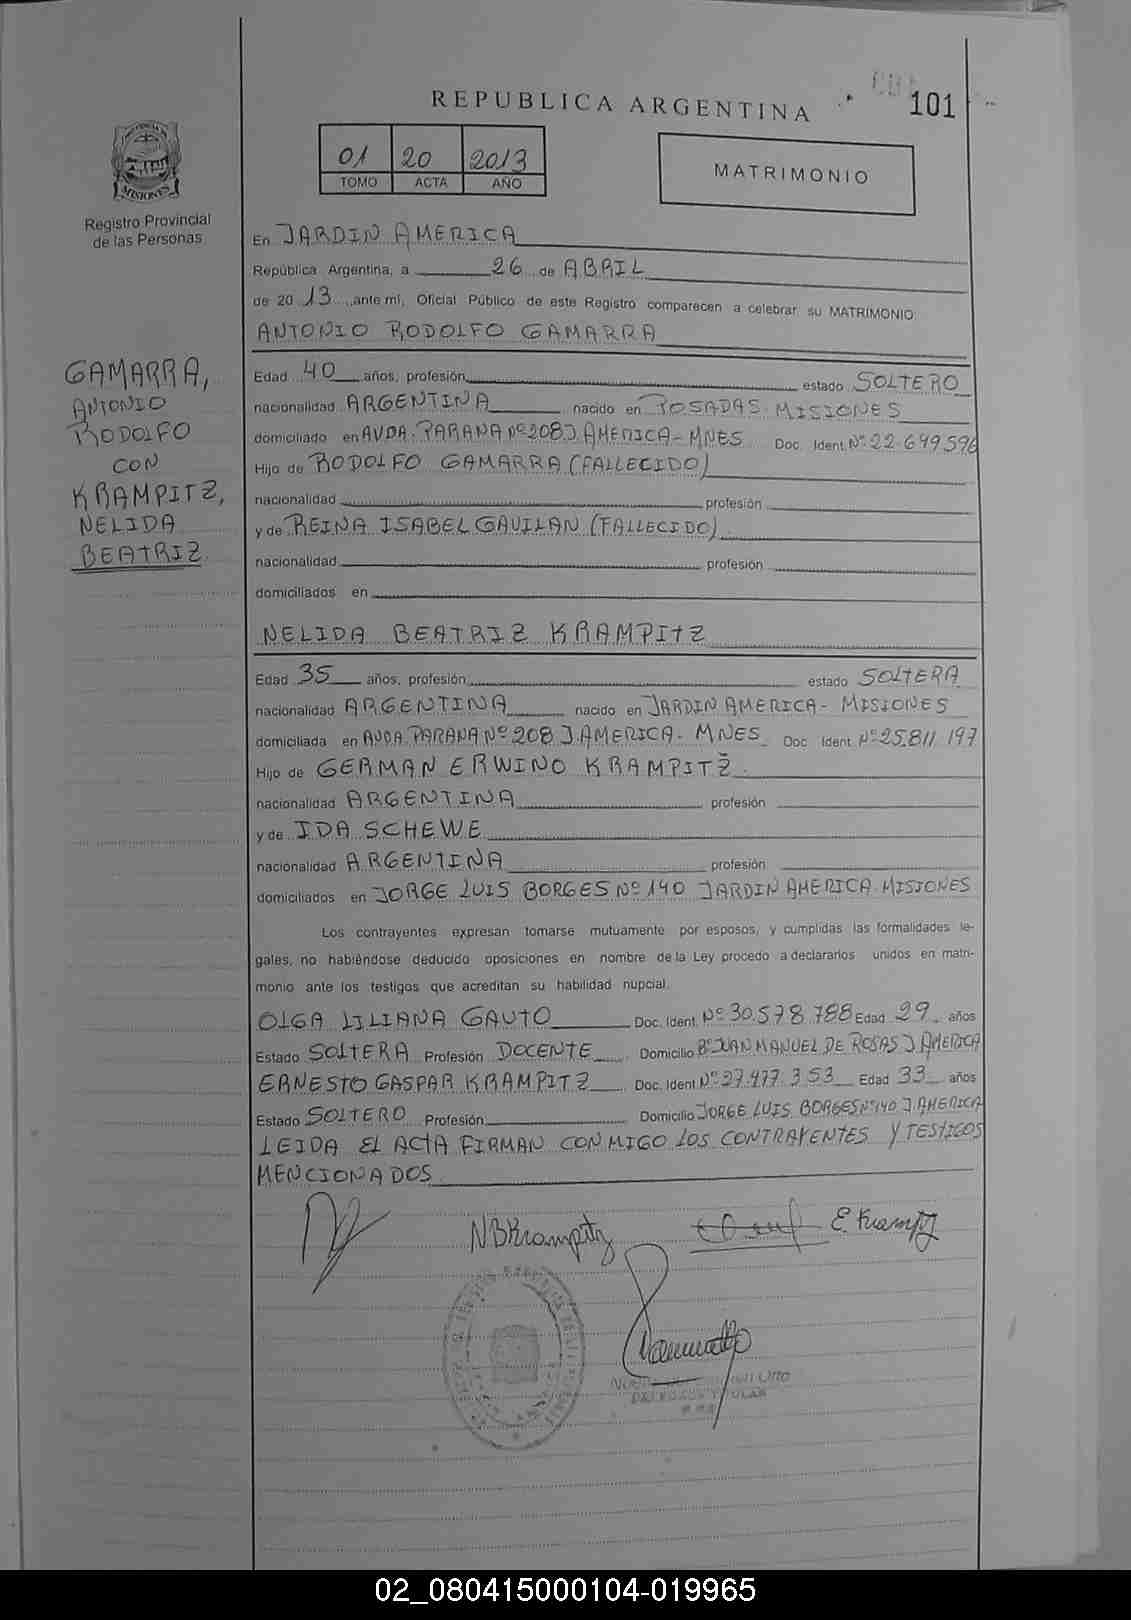 REPUBLICA ARGENTINA
101
PROVINCIA DE
MISIONES
Registro Provincial
de las Personas
01 20 2013
TOMO ACTA AÑO
MATRIMONIO
En JARDIN AMERICA
República Argentina, a 26 de ABRIL
de 20 13, ante mí, Oficial Público de este Registro comparecen a celebrar su MATRIMONIO
ANTONIO RODOLFO GAMARRA
GAMARRA,
ANTONIO
RODOLFO
CON
KRAMPITZ,
NELIDA
BEATRIZ
Edad 40 años, profesión estado SOLTERO
nacionalidad ARGENTINA nacido en POSADAS-MISIONES
domiciliado en AVDA. PARANA Nº 208 J. AMERICA-MNES. Doc. Ident. Nº 22.699.596
Hijo de RODOLFO GAMARRA (FALLECIDO)
nacionalidad profesión
y de REINA ISABEL GAVILAN (FALLECIDO)
nacionalidad profesión
domiciliados en
NELIDA BEATRIZ KRAMPITZ
Edad 35 años, profesión estado SOLTERA
nacionalidad ARGENTINA nacido en JARDIN AMERICA- MISIONES
domiciliada en AVDA. PARANA Nº 208 J. AMERICA- MNES. Doc Ident. Nº 25.811 197
Hijo de GERMAN ERWINO KRAMPITZ
nacionalidad ARGENTINA profesión
y de IDA SCHEWE
nacionalidad ARGENTINA profesión
domiciliados en JORGE LUIS BORGES Nº 140 JARDIN AMERICA-MISIONES
Los contrayentes expresan tomarse mutuamente por esposos, y cumplidas las formalidades le-
gales, no habiéndose deducido oposiciones en nombre de la Ley procedo a declararlos unidos en matri-
monio ante los testigos que acreditan su habilidad nupcial.
OLGA LILIANA GAUTO Doc. Ident. Nº 30.578.788 Edad 29 años
Estado SOLTERA Profesión DOCENTE Domicilio Bº JUAN MANUEL DE ROSAS J. AMERICA
ERNESTO GASPAR KRAMPITZ Doc. Ident. Nº 27.477.353 Edad 33 años
Estado SOLTERO Profesión Domicilio JORGE LUIS BORGES Nº 140 J. AMERICA
LEIDA EL ACTA FIRMAN CONMIGO LOS CONTRAYENTES Y TESTIGOS
MENCIONADOS
NBKrampitz E. Krampitz
02_080415000104-019965